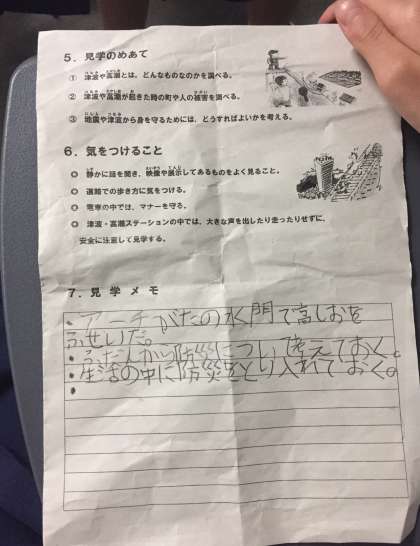 5. 見学のめあて
① 津波や高潮とは、どんなものなのかを調べる。
② 津波や高潮が起きた時の町や人の被害を調べる。
③ 地震や津波から身を守るためには、どうすればよいかを考える。
6. 気をつけること
◎ 静かに話を聞き、映像や展示してあるものをよく見ること。
◎ 道路での歩き方に気をつける。
◎ 電車の中では、マナーを守る。
◎ 津波・高潮ステーションの中では、大きな声を出したり走ったりせずに、
安全に注意して見学する。
7. 見学メモ
・アーチがたの水門で高しおを
ふせいだ。
・ふだんから防災について考えておく。
・生活の中に防災をとり入れておく。
・